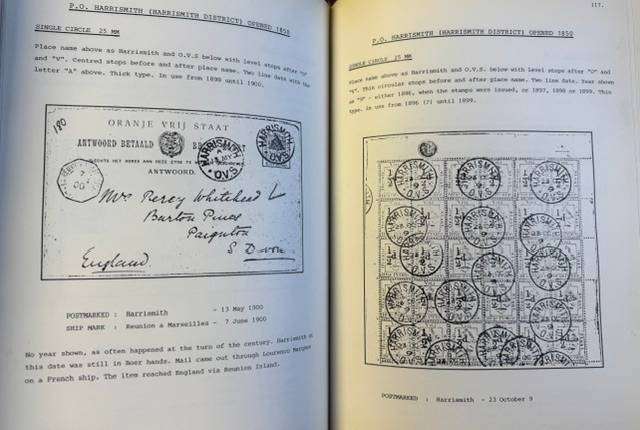 P.O. HARRISMITH (HARRISMITH DISTRICT) OPENED 1850
SINGLE CIRCLE 25 MM
Place name above as Harrismith and O.V.S below with level stops after "O"
and "V". Centred stops before and after place name. Two line date with the
letter "A" above. Thick type. In use from 1899 until 1900.
ORANJE VRIJ STAAT
ANTWOORD BETAALD
ANTWOORD.
HARRISMITH
O.V.S
HARRISMITH
O.V.S
180
Mrs Percy Whitehead
Barton Pines
Paignton
S Devon
England
POSTMARKED : Harrismith - 13 May 1900
SHIP MARK : Reunion a Marseilles - 7 June 1900
No year shown, as often happened at the turn of the century. Harrismith at
this date was still in Boer hands. Mail came out through Lourenco Marques
on a French ship. The item reached England via Reunion Island.
117.
P.O. HARRISMITH (HARRISMITH DISTRICT) OPENED 1850
SINGLE CIRCLE 25 MM
Place name above as Harrismith and O.V.S below with level stops after "O" and
"V". Thin circular stops before and after place name. Two line date. Year shown
as "9" - either 1896, when the stamps were issued, or 1897, 1898 or 1899. Thin
type. In use from 1896 (?) until 1899.
HARRISMITH
O.V.S
POSTMARKED : Harrismith - 23 October 9